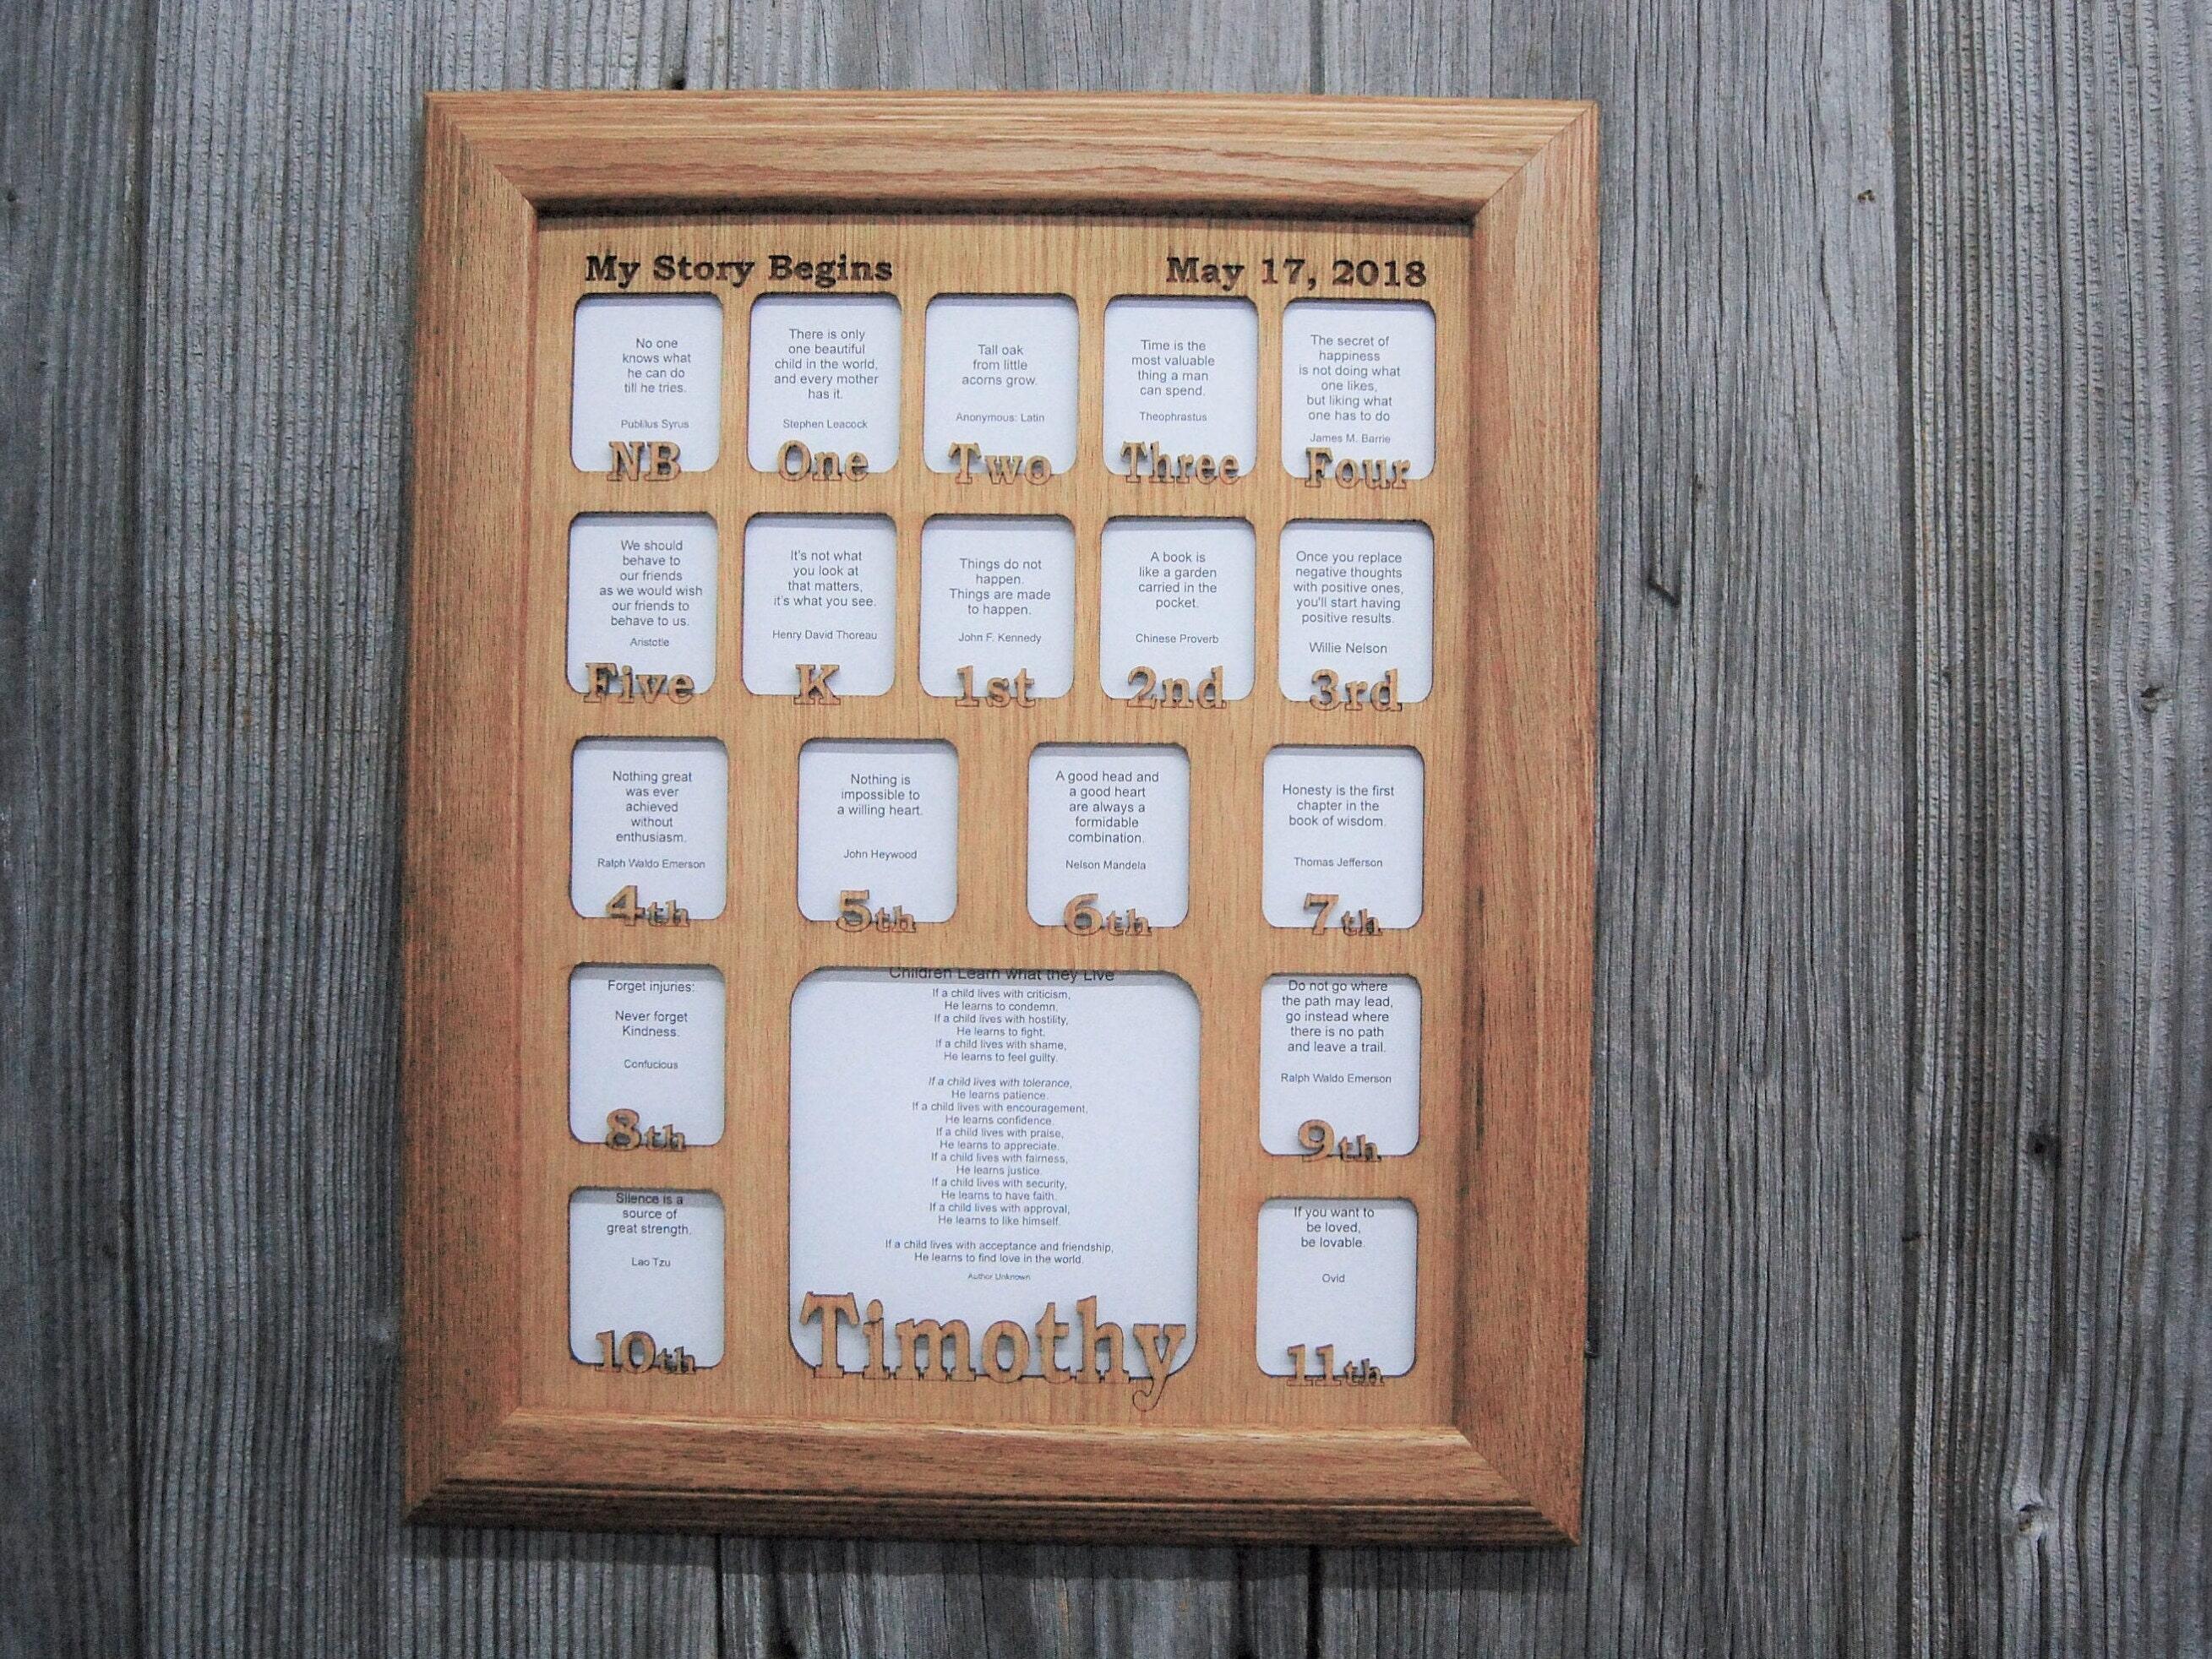 My Story Begins
May 17, 2018
No one
knows what
he can do
till he tries.
Publilus Syrus
NB
There is only
one beautiful
child in the world,
and every mother
has it.
Stephen Leacock
One
Tall oak
from little
acorns grow.
Anonymous: Latin
Two
Time is the
most valuable
thing a man
can spend.
Theophrastus
Three
The secret of
happiness
is not doing what
one likes,
but liking what
one has to do
James M. Barrie
Four
We should
behave to
our friends
as we would wish
our friends to
behave to us.
Aristotle
Five
It's not what
you look at
that matters,
it's what you see.
Henry David Thoreau
K
Things do not
happen.
Things are made
to happen.
John F. Kennedy
1st
A book is
like a garden
carried in the
pocket.
Chinese Proverb
2nd
Once you replace
negative thoughts
with positive ones,
you'll start having
positive results.
Willie Nelson
3rd
Nothing great
was ever
achieved
without
enthusiasm.
Ralph Waldo Emerson
4th
Nothing is
impossible to
a willing heart.
John Heywood
5th
A good head and
a good heart
are always a
formidable
combination.
Nelson Mandela
6th
Honesty is the first
chapter in the
book of wisdom.
Thomas Jefferson
7th
Forget injuries:
Never forget
Kindness.
Confucious
8th
Children Learn what they Live
If a child lives with criticism,
He learns to condemn.
If a child lives with hostility,
He learns to fight.
If a child lives with shame,
He learns to feel guilty.
If a child lives with tolerance,
He learns patience.
If a child lives with encouragement,
He learns confidence.
If a child lives with praise,
He learns to appreciate.
If a child lives with fairness,
He learns justice.
If a child lives with security,
He learns to have faith.
If a child lives with approval,
He learns to like himself.
If a child lives with acceptance and friendship,
He learns to find love in the world.
Author Unknown
Timothy
Do not go where
the path may lead,
go instead where
there is no path
and leave a trail.
Ralph Waldo Emerson
9th
Silence is a
source of
great strength.
Lao Tzu
10th
If you want to
be loved,
be lovable.
Ovid
11th